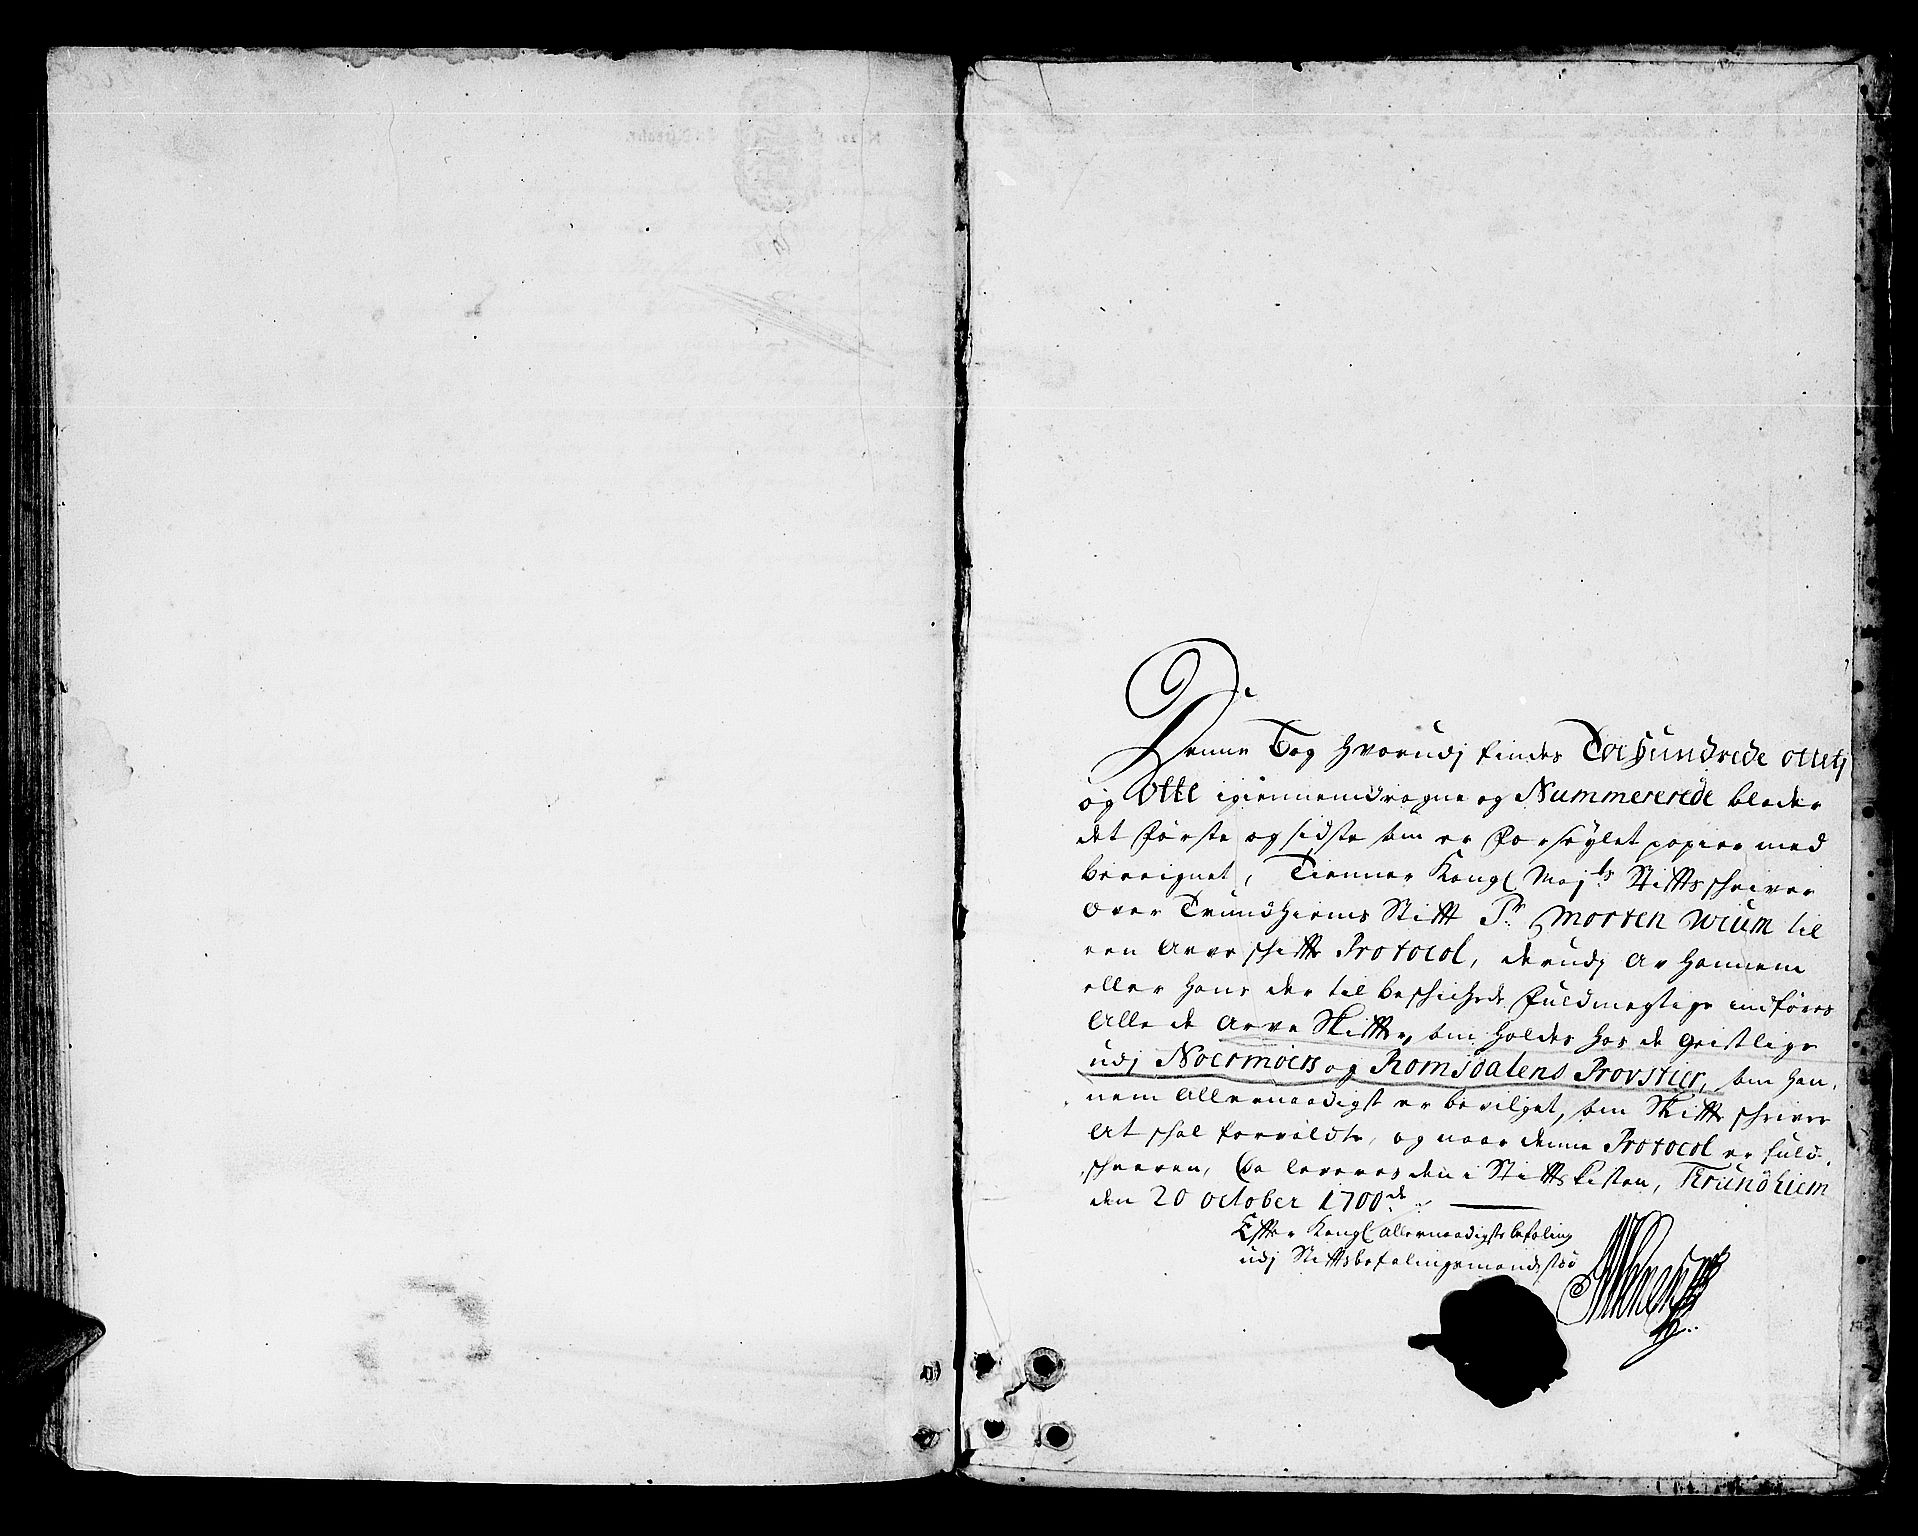 Denne Bog hvorudj findes Toehundrede ottetj
og Otte igiennemdragne og Nummererede blade
det første og sidste som er forseylet papier med
bereignet, Tienner Kongl Maj.ts Stifftsschriver
over Trundhiems Stifft Sr. Morten Wium til
een Arve schiffte Protocol, derudj Av hannem
eller hans der til beschichede fuldmegtige indføres
Alle de Arve Skiffter, som holdes hos de geistlige
udj Noermøers og Romsdalens Provstier, som han,
nem Allernaadigst er bevilget, som Skiffte schriver
At schal forvalte, og naar denne Protocol er fuld,
schreven, Da leveres den i Stifftskisten, Trundhiem
den 20 october 1700.de
Effter Kongl Allernaadigste befaling
udj Stifftsbefalingsmands